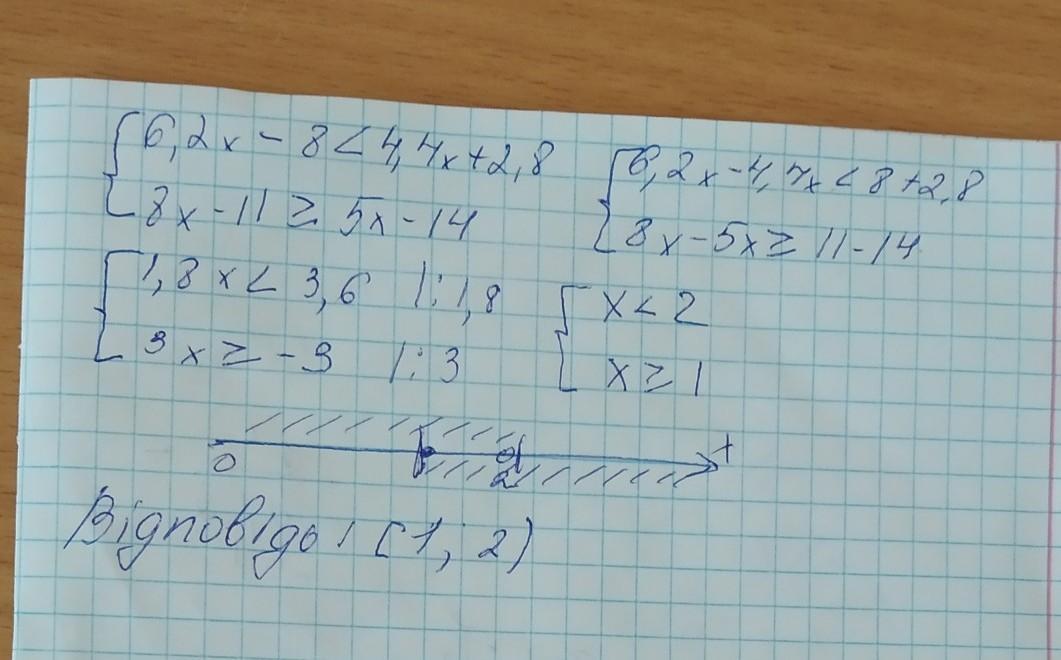 6,2x - 8 < 4,4x + 2,8
8x - 11 ≥ 5x - 14
6,2x - 4,4x < 8 + 2,8
8x - 5x ≥ 11 - 14
1,8x < 3,6 |: 1,8
3x ≥ -3 |: 3
x < 2
x ≥ 1
0 2 +
Відповідь: [1; 2)